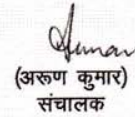 (अरूण कुमार)
संचालक